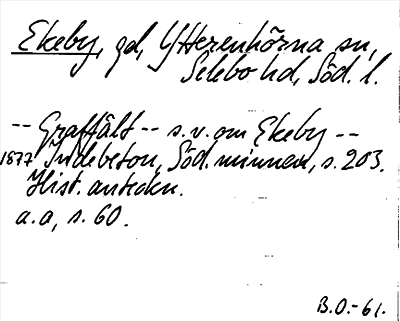 Ekeby, gd, Ytterenhörna sn,
Selebo hd, Söd. l.
-- Graffält -- s.v. om Ekeby --
1877 Indebetou, Söd. minnen, s. 203.
Hist. anteckn.
a.a, s. 60.
B.O.-61.